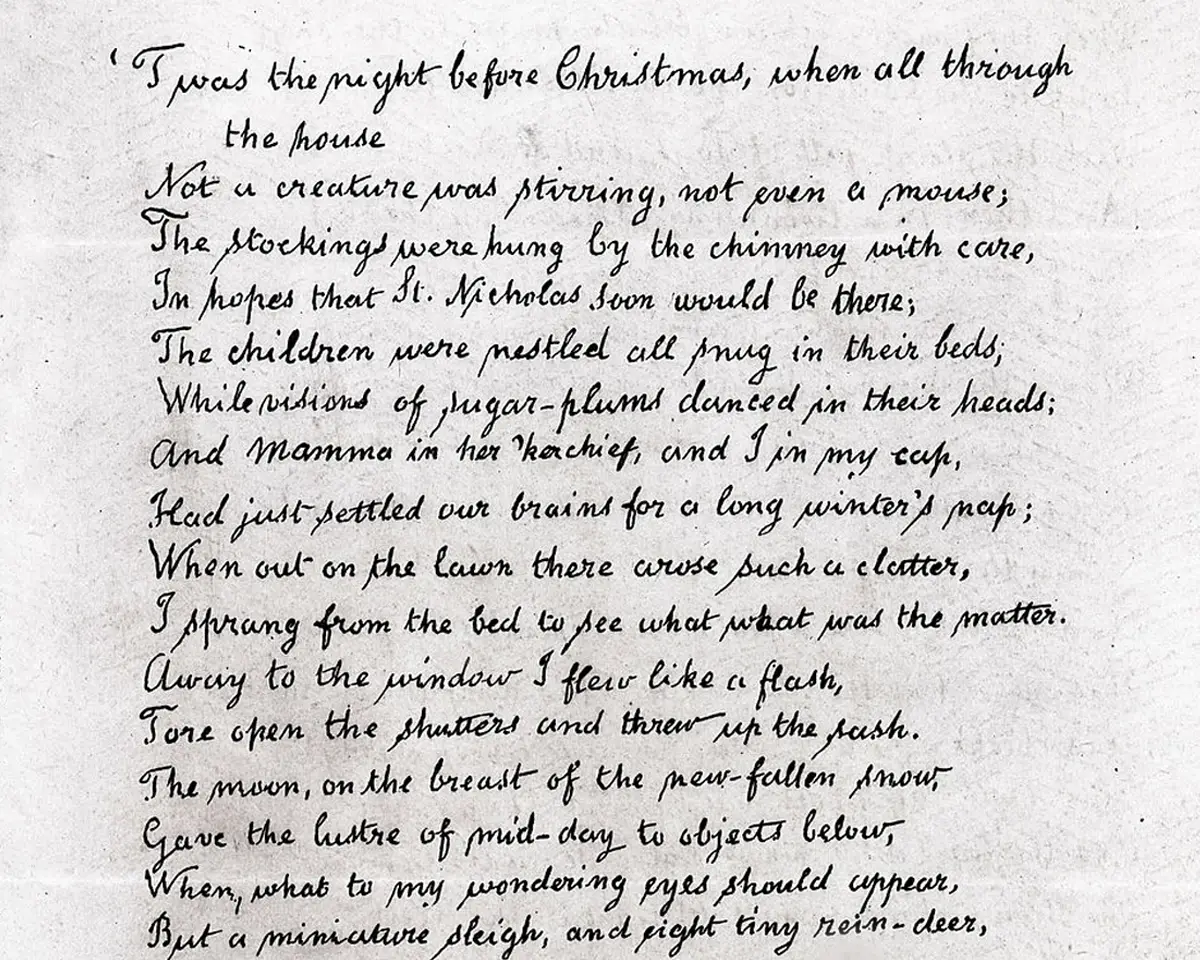 'Twas the night before Christmas, when all through
the house
Not a creature was stirring, not even a mouse;
The stockings were hung by the chimney with care,
In hopes that St. Nicholas soon would be there;
The children were nestled all snug in their beds;
While visions of sugar-plums danced in their heads;
And Mamma in her 'kerchief, and I in my cap,
Had just settled our brains for a long winter's nap;
When out on the lawn there arose such a clatter,
I sprang from the bed to see what what was the matter.
Away to the window I flew like a flash,
Tore open the shutters and threw up the sash.
The moon, on the breast of the new-fallen snow,
Gave the lustre of mid-day to objects below,
When, what to my wondering eyes should appear,
But a miniature sleigh, and eight tiny rein-deer,